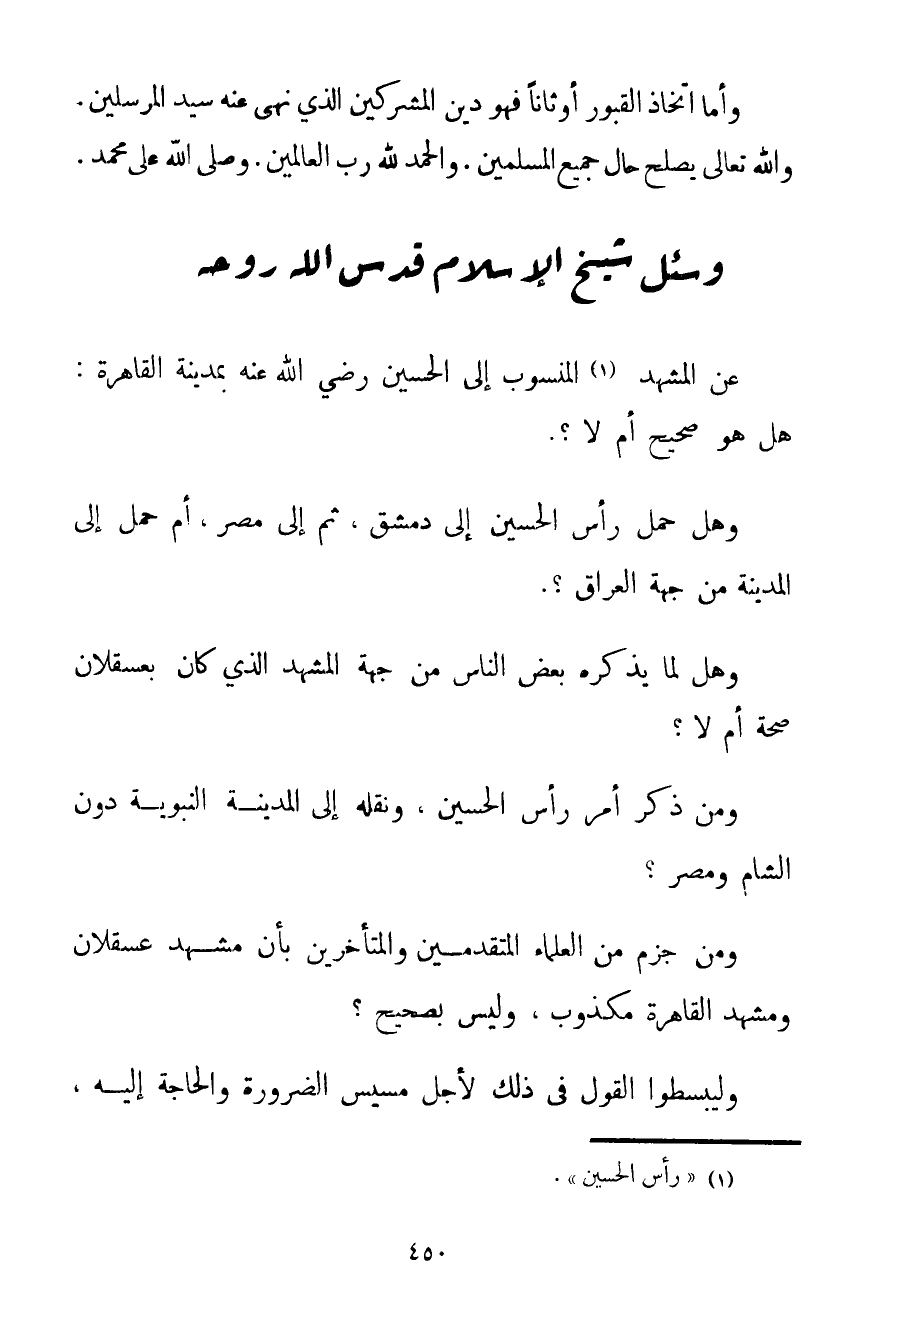 وأما اتخاذ القبور أوثاناً فهو دين المشركين الذي نهى عنه سيد المرسلين .
والله تعالى يصلح حال جميع المسلمين . والحمد لله رب العالمين . وصلى الله على محمد .
وسئل شيخ الإسلام قدس الله روحه
عن المشهد (١) المنسوب إلى الحسين رضي الله عنه بمدينة القاهرة :
هل هو صحيح أم لا ؟.
وهل حمل رأس الحسين إلى دمشق ، ثم إلى مصر ، أم حمل إلى
المدينة من جهة العراق ؟.
وهل لما يذكره بعض الناس من جهة المشهد الذي كان بعسقلان
صحة أم لا ؟
ومن ذكر أمر رأس الحسين ، ونقله إلى المدينة النبوية دون
الشام ومصر ؟
ومن جزم من العلماء المتقدمين والمتأخرين بأن مشهد عسقلان
ومشهد القاهرة مكذوب ، وليس بصحيح ؟
وليبسطوا القول في ذلك لأجل مسيس الضرورة والحاجة إليه ،
(١) « رأس الحسين » .
٤٥٠